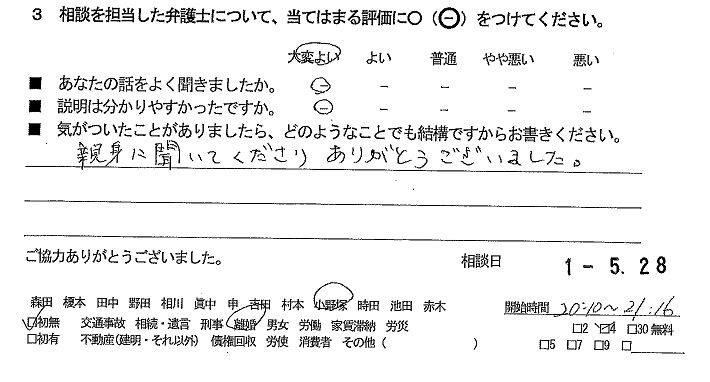 3 相談を担当した弁護士について、当てはまる評価に○（⊖）をつけてください。
大変よい よい 普通 やや悪い 悪い
■ あなたの話をよく聞きましたか。 ⊖ − − − −
■ 説明は分かりやすかったですか。 ⊖ − − − −
■ 気がついたことがありましたら、どのようなことでも結構ですからお書きください。
親身に聞いてくださりありがとうございました。
ご協力ありがとうございました。
相談日 1-5.28
森田 榎本 田中 野田 相川 眞中 申 吉田 村本 小野塚 時田 池田 赤木 開始時間 20:10~21:16
☑初無 交通事故 相続・遺言 刑事 離婚 男女 労働 家賃滞納 労災 □2 ☑4 □30無料
□初有 不動産(建明・それ以外) 債権回収 労使 消費者 その他( ) □5 □7 □9 □